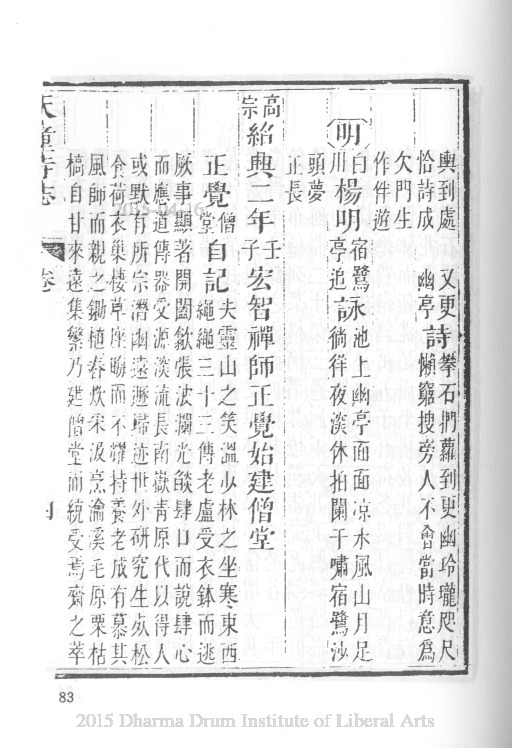 興到處　又更詩攀石捫蘿到更幽玲瓏咫尺
恰詩成　幽亭　懶窮搜旁人不會當時意為
欠門生
作伴遊
明
白川楊明宿鷺亭追詠池上幽亭面面凉水風山月足
徜徉夜淡休拍闌干嘯宿鷺沙
頭夢
正長
高宗紹興二年壬子宏智禪師正覺始建僧堂
正覺僧堂自記夫靈山之笑溫少林之坐寒東西
繩繩三十三傳老盧受衣鉢而逃
厥事顯著開闔歙張波瀾光燄肆口而說肆心
而應道傳器受源淡流長南嶽青原代以得人
或默有所宗潛幽遠遯歸迹世外研究生松
食荷衣巢棲草座晦而不耀持養老成有慕其
風師而親之鋤植舂炊采汲烹瀹溪毛原栗枯
槁自甘來遠集繁乃建僧堂而統受焉齋之萃
天童寺志　卷
83
2015 Dharma Drum Institute of Liberal Arts